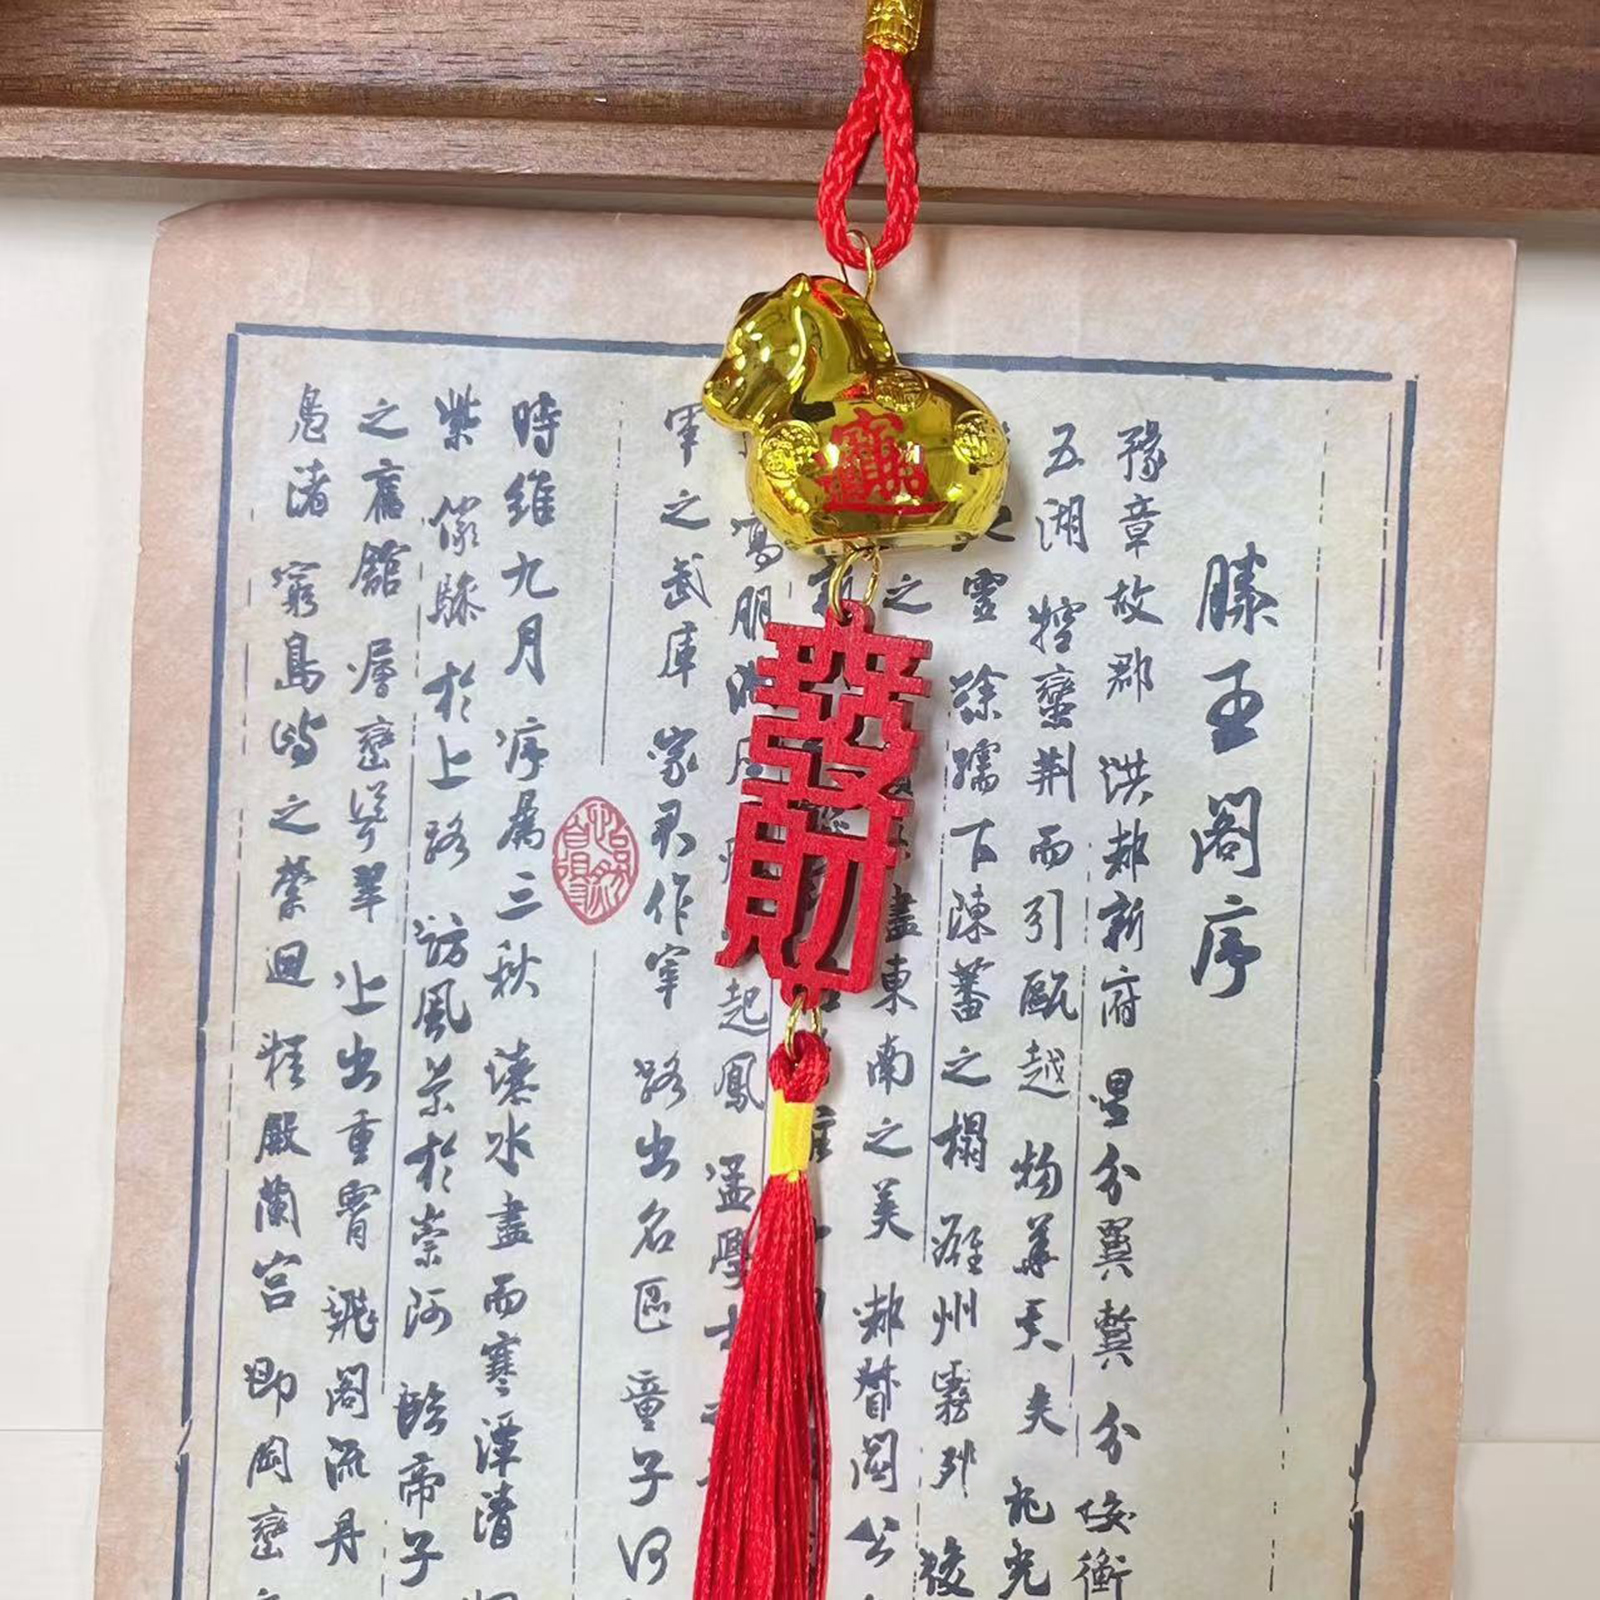 滕王閣序
豫章故郡 洪都新府 星分翼軫 分 衡
五湖 控蠻荆而引甌越 物華天 光
靈 徐孺下陳蕃之榻 雄州霧列 俊
之 盡東南之美 都督閻公
朋 起鳳 孟學士
軍之武庫 家君作宰 路出名區 童子何
時維九月 序屬三秋 潦水盡而寒潭清
紫 儼驂於上路 訪風景於崇阿 臨帝子
之舊館 層巒聳翠 上出重霄 飛閣流丹
鳧渚 窮島嶼之縈迴 桂殿蘭宮 即岡巒
招財進寶
發財